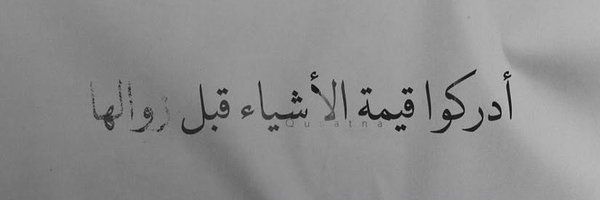 أدركوا قيمة الأشياء قبل زوالها